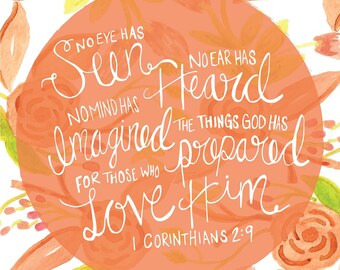 NO EYE HAS
Seen NO EAR HAS
Heard
NO MIND HAS
Imagined THE THINGS GOD HAS
prepared
FOR THOSE WHO
Love Him
1 CORINTHIANS 2:9